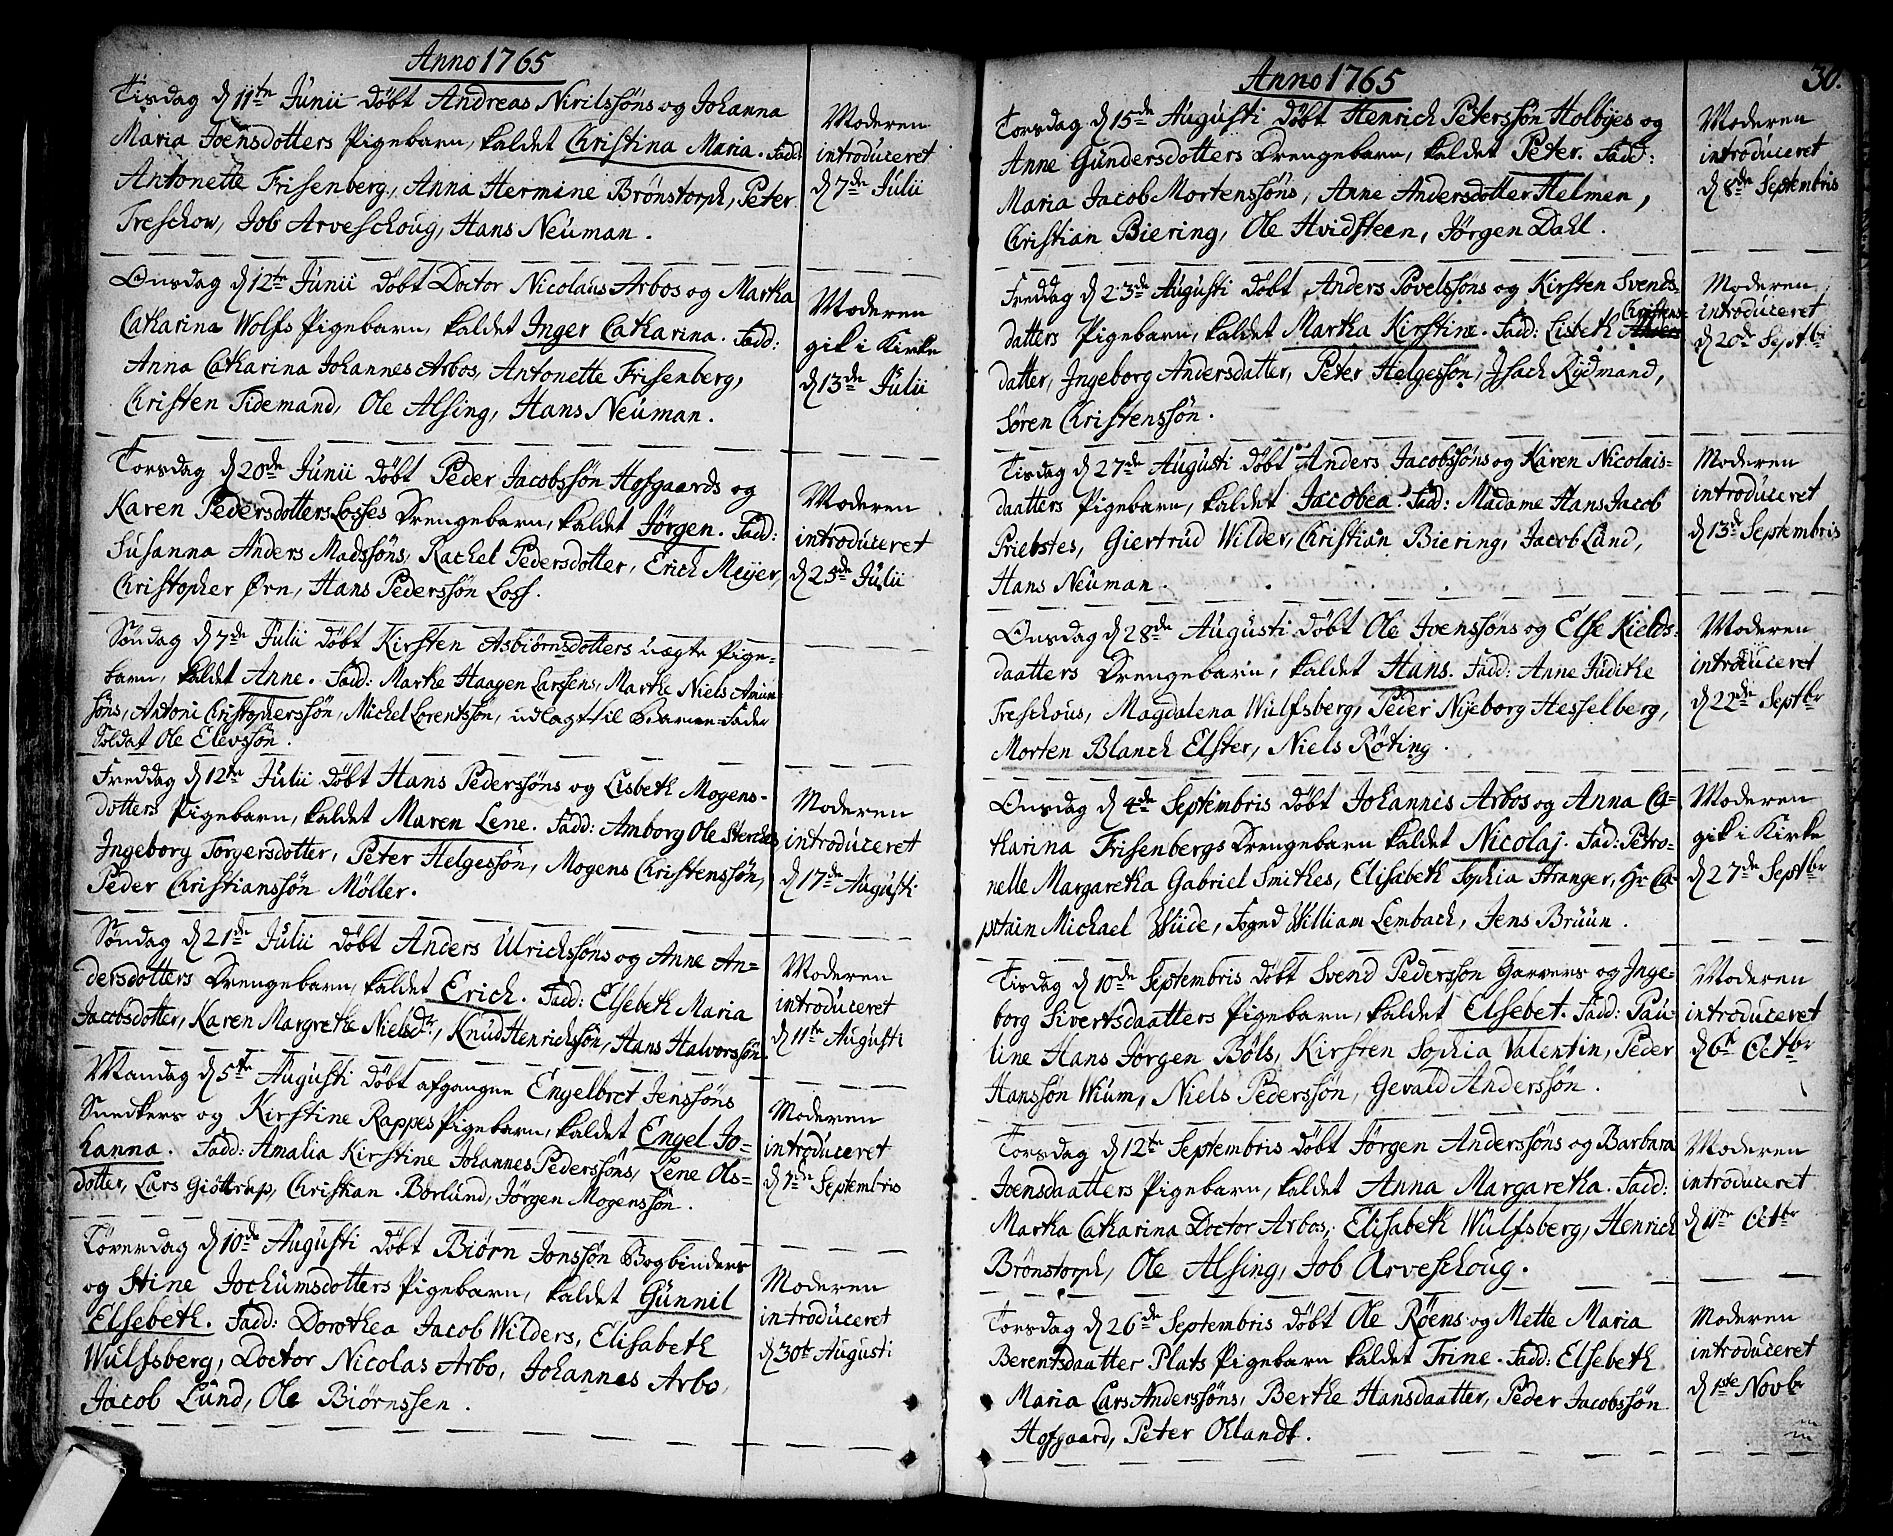 Anno 1765
Tisdag d 11te Junii döbt Andreas Nirilssöns og Johanna
Maria Joensdotters Pigebarn, kaldet Christina Maria. Fadd:
Antonette Frisenberg, Anna Hermine Brönstorph, Peter
Treschow, Job Arveschoug, Hans Neüman.
Moderen
introdúceret
d 7de Julii
Onsdag d 12te Junii döbt Doctor Nicolaus Arbos og Martha
Catharina Wolfs Pigebarn, kaldet Inger Catharina. Fadd:
Anna Catharina Johannes Arbos, Antonette Frisenberg,
Christen Tidemand, Ole Alsing, Hans Neüman.
Moderen
gik i Kirke
d 13de Julii
Torsdag d 20de Junii döbt Peder Jacobssön Hofgaards og
Karen Pedersdotters Losses Drengebarn, kaldet Jörgen. Fadd:
Susanna Anders Madssöns, Rachel Pedersdotter, Erich Meijer,
Christopher Ørn, Hans Pederssön Loss.
Moderen
introdúceret
d 25de Julii
Söndag d 7de Julii döbt Kirsten Asbiörnsdotters uægte Pige-
barn, kaldet Anne. Fadd: Marthe Haagen Larsens, Marthe Niels Amün-
söns, Antoni Christopherssön, Michel Lorentssön, udlagt til Barnes Fader
Soldat Ole Elevssön.
Freddag d 12te Julii döbt Hans Pederssöns og Lisbeth Mogens-
dotters Pigebarn, kaldet Maren Lene. Fadd: Amborg Ole Sterches
Ingeborg Torgersdotter, Peter Helgessön, Mogens Christenssön,
Peder Christianssön Möller.
Moderen
introdúceret
d 17de Augusti
Söndag d 21de Julii döbt Anders Ulrichssöns og Anne An-
dersdotters Drengebarn, kaldet Erich. Fadd: Elsebeth Maria
Jacobsdotter, Karen Margrethe Nielsdtr, Knud Henrichssön, Hans Halvorssön.
Moderen
introdúceret
d 11te Augusti
Mandag d 5te Augusti döbt afgangne Engelbret Jenssöns
Snedkers og Kirstine Rappes Pigebarn, kaldet Engel Jo-
hanna. Fadd: Amalia Kirstine Johannes Pederssöns, Lene Ols-
dotter, Lars Giöttrup, Christian Borlünd, Jörgen Mogenssön.
Moderen
introdúceret
d 7de Septembris
Löverdag d 10de Augusti döbt Biörn Jonssön Bogbinders
og Stine Jochumsdotters Pigebarn, kaldet Günnil
Elsebeth. Fadd: Dorothea Jacob Wilders, Elisabeth
Wulfsberg, Doctor Nicolas Arbo, Johannes Arbo,
Jacob Lünd, Ole Biörnssen.
Moderen
introdúceret
d 30te Augusti
Anno 1765
30.
Torsdag d 15de Augusti döbt Henrich Peterssön Holbyes og
Anne Gündersdotters Drengebarn, kaldet Peter. Fadd:
Maria Jacob Mortenssöns, Anne Andersdotter Helmen,
Christian Biering, Ole Hvidsteen, Jörgen Dahl.
Moderen
introdúceret
d 8de Septembris
Freddag d 23de Augusti döbt Anders Povelssöns og Kirsten Svends-
datters Pigebarn, kaldet Martha Kirstine. Fadd: Lisbeth Christens-
datter, Ingeborg Andersdatter, Peter Helgessön, Isach Rydmand,
Sören Christenssön.
Moderen
introdúceret
d 20de Septbr
Tisdag d 27de Augusti döbt Anders Jacobssöns og Karen Nicolais-
daatters Pigebarn, kaldet Jacobea. Fadd: Madame Hans Jacob
Priebstes, Giertrud Wilder, Christian Biering, Jacob Lünd,
Hans Neüman.
Moderen
introdúceret
d 13de Septembris
Onsdag d 28de Augusti döbt Ole Joenssöns og Else Kields-
daatters Drengebarn, kaldet Hans. Fadd: Anne Judithe
Treschous, Magdalena Wulfsberg, Peder Nyeborg Hesselberg,
Morten Blanch Elster, Niels Röting.
Moderen
introdúceret
d 22de Septbr
Onsdag d 4de Septembris döbt Johannis Arbos og Anna Ca-
tharina Frisenbergs Drengebarn kaldet Nicolaj. Fad: Petro-
nelle Margaretha Gabriel Smithes, Elisabeth Sophia Stranger, Hr Ca-
ptain Michael Wide, Fogned William Lembach, Jens Brüün.
Moderen
gik i Kirke
d 27de Septbr
Tisdag d 10de Septembris döbt Svend Pederssön Garvers og Inge-
borg Sivertsdaatters Pigebarn, kaldet Elsebet. Fadd: Pau-
line Hans Jörgen Böls, Kirsten Sophia Valentin, Peder
Hanssön Wiüm, Niels Pederssön, Gevald Anderssön.
Moderen
introdúceret
d 6te Octbr
Torsdag d 12te Septembris döbt Jörgen Anderssöns og Barbara
Joensdaatters Pigebarn, kaldet Anna Margaretha. Fadd:
Martha Catharina Doctor Arbos, Elisabeth Wulfsberg, Henrich
Brönstorph, Ole Alsing, Job Arveschoug.
Moderen
introdúceret
d 11te Octbr
Torsdag d 26de Septembris döbt Ole Röens og Mette Maria
Berentsdaatter Plats Pigebarn kaldet Trine. Fadd: Elsebeth
Maria Lars Anderssöns, Berthe Hansdaatter, Peder Jacobssön
Hofgaard, Peter Olandt.
Moderen
introdúceret
d 1ste Novbr